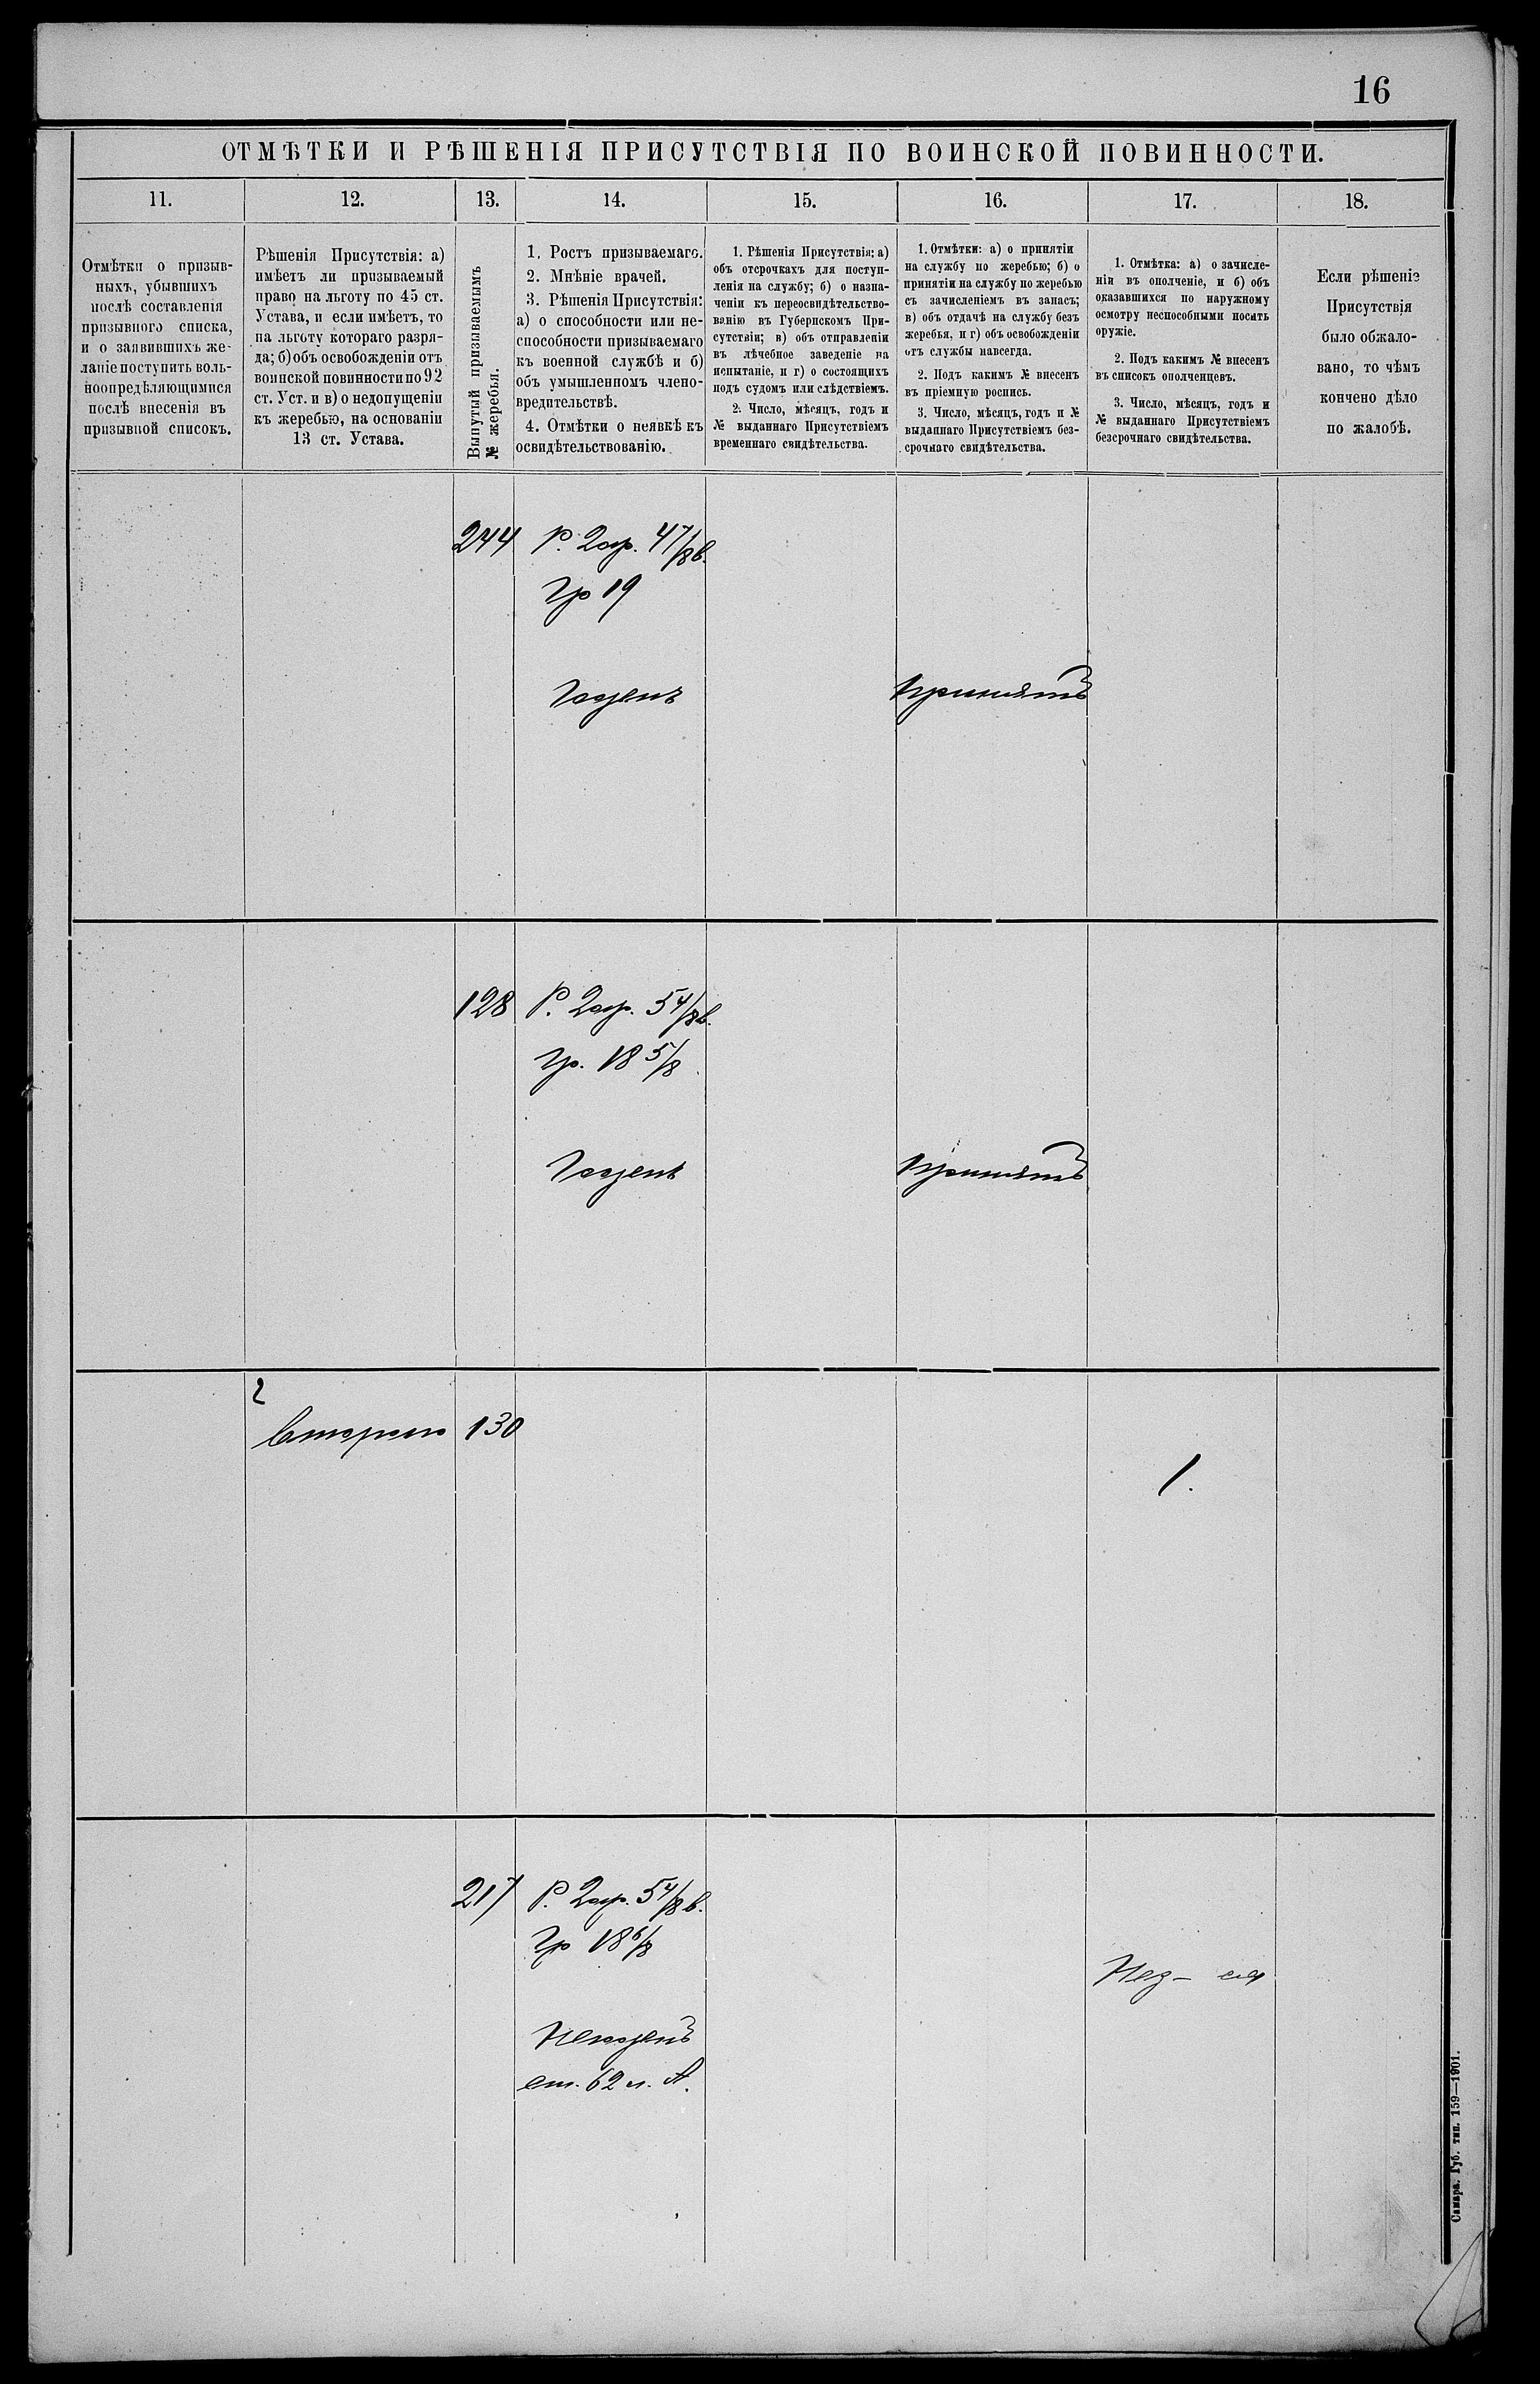 16
ОТМѢТКИ И РѢШЕНІЯ ПРИСУТСТВІЯ ПО ВОИНСКОЙ ПОВИННОСТИ.
11.
12.
13.
14.
15.
16.
17.
18.
Отмѣтки о призыв-
ныхъ, убывшихъ
послѣ составленія
призывного списка,
и о заявившихъ же-
ланіе поступить воль-
ноопредѣляющимися
послѣ внесенія въ
призывной списокъ.
Рѣшенія Присутствія: а)
имѣетъ ли призываемый
право на льготу по 45 ст.
Устава, и если имѣетъ, то
на льготу котораго разря-
да; б) объ освобожденіи отъ
воинской повинности по 92
ст. Уст. и в) о недопущеніи
къ жеребью, на основаніи
13 ст. Устава.
Вынутый призываемымъ
№ жеребья.
1. Ростъ призываемаго.
2. Мнѣніе врачей.
3. Рѣшенія Присутствія:
а) о способности или не-
способности призываемаго
къ военной службѣ и б)
объ умышленномъ члено-
вредительствѣ.
4. Отмѣтки о неявкѣ къ
освидѣтельствованію.
1. Рѣшенія Присутствія: а)
объ отсрочкахъ для поступ-
ленія на службу; б) о назна-
ченіи къ переосвидѣтельство-
ванію въ Губернскомъ При-
сутствіи; в) объ отправленіи
въ лѣчебное заведеніе на
испытаніе, и г) о состоящихъ
подъ судомъ или слѣдствіемъ.
2. Число, мѣсяцъ, годъ и
№ выданнаго Присутствіемъ
временнаго свидѣтельства.
1. Отмѣтки: а) о принятіи
на службу по жеребью; б) о
принятіи на службу по жеребью
съ зачисленіемъ въ запасъ;
в) объ отдачѣ на службу безъ
жеребья, и г) объ освобожденіи
отъ службы навсегда.
2. Подъ какимъ № внесенъ
въ пріемную роспись.
3. Число, мѣсяцъ, годъ и №
выданнаго Присутствіемъ без-
срочнаго свидѣтельства.
1. Отмѣтка: а) о зачисле-
ніи въ ополченіе, и б) объ
оказавшихся по наружному
осмотру неспособными носить
оружіе.
2. Подъ какимъ № внесенъ
въ списокъ ополченцевъ.
3. Число, мѣсяцъ, годъ и
№ выданнаго Присутствіемъ
безсрочнаго свидѣтельства.
Если рѣшеніе
Присутствія
было обжало-
вано, то чѣмъ
кончено дѣло
по жалобѣ.
244 Р. 2 ар. 4 7/8 в.
Гр 19
Годенъ Принятъ
128 Р. 2 ар. 5 4/8 в.
Гр. 18 5/8
Годенъ Принятъ
2
Второго 130
1.
217 Р. 2 ар. 5 4/8 в.
Гр 18 6/8
Негоденъ
ст. 62 л. А.
Самара. Губ. тип. 159—1901.